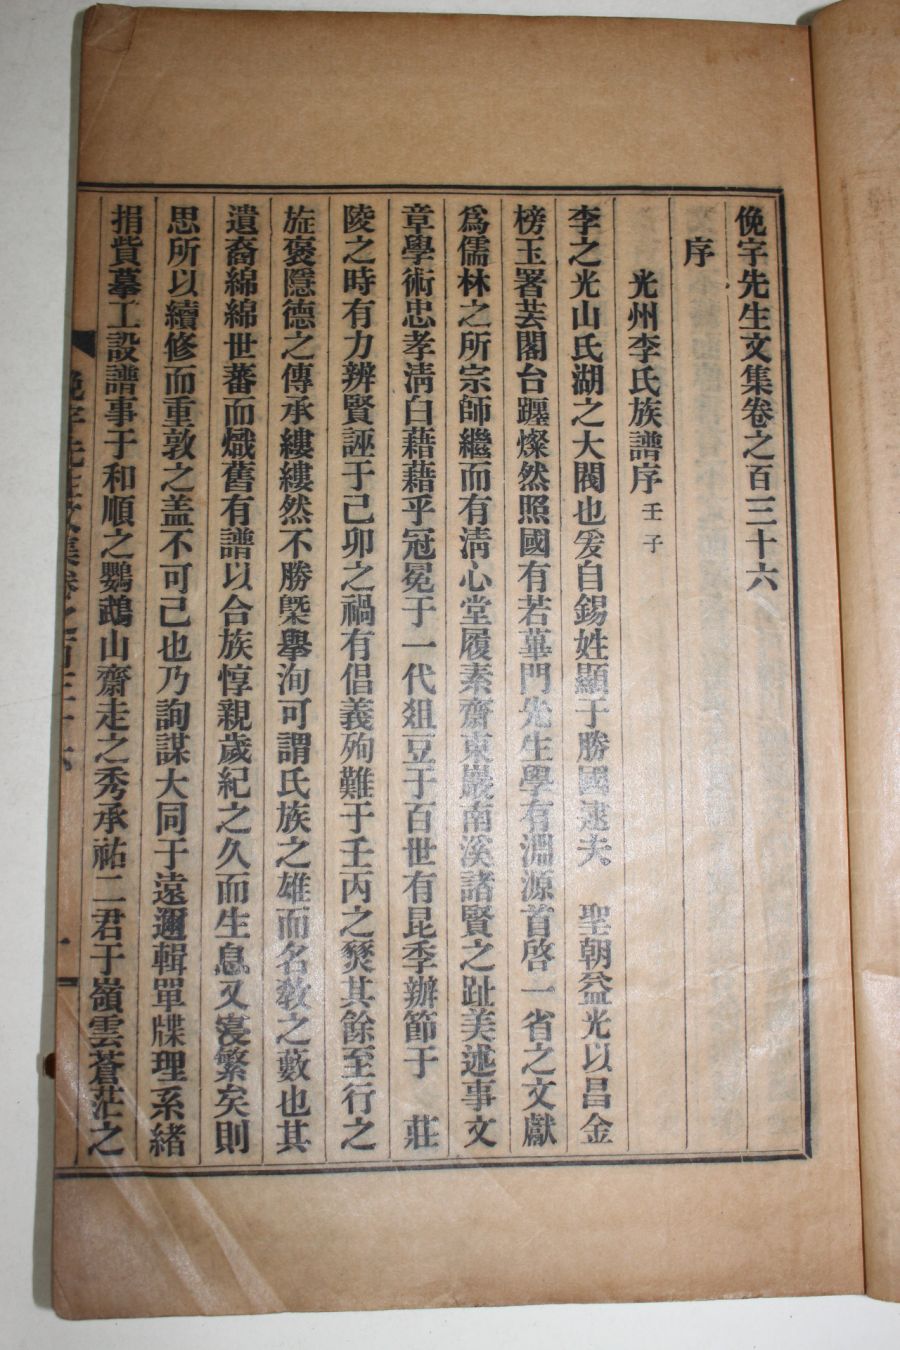 俛宇先生文集卷之百三十六
序
光州李氏族譜序 壬子
李之光山氏湖之大閥也爰自錫姓顯于勝國逮夫 聖朝益光以昌金
榜玉署芸閣台躔燦然照國有若蓽門先生學有淵源首啓一省之文獻
爲儒林之所宗師繼而有淸心堂履素齋東巖南溪諸賢之趾美述事文
章學術忠孝淸白藉藉乎冠冕于一代俎豆于百世有昆季辦節于 莊
陵之時有力辨賢誣于己卯之禍有倡義殉難于壬丙之燹其餘至行之
旌褒隱德之傳承縷縷然不勝槩擧洵可謂氏族之雄而名敎之藪也其
遺裔綿綿世蕃而熾舊有譜以合族惇親歲紀之久而生息又寖繁矣則
思所以續修而重敦之盖不可已也乃詢謀大同于遠邇輯單牒理系緖
捐貲募工設譜事于和順之鸚鵡山齋走之秀承祐二君于嶺雲蒼茫之
俛宇先生文集卷之百三十六
一